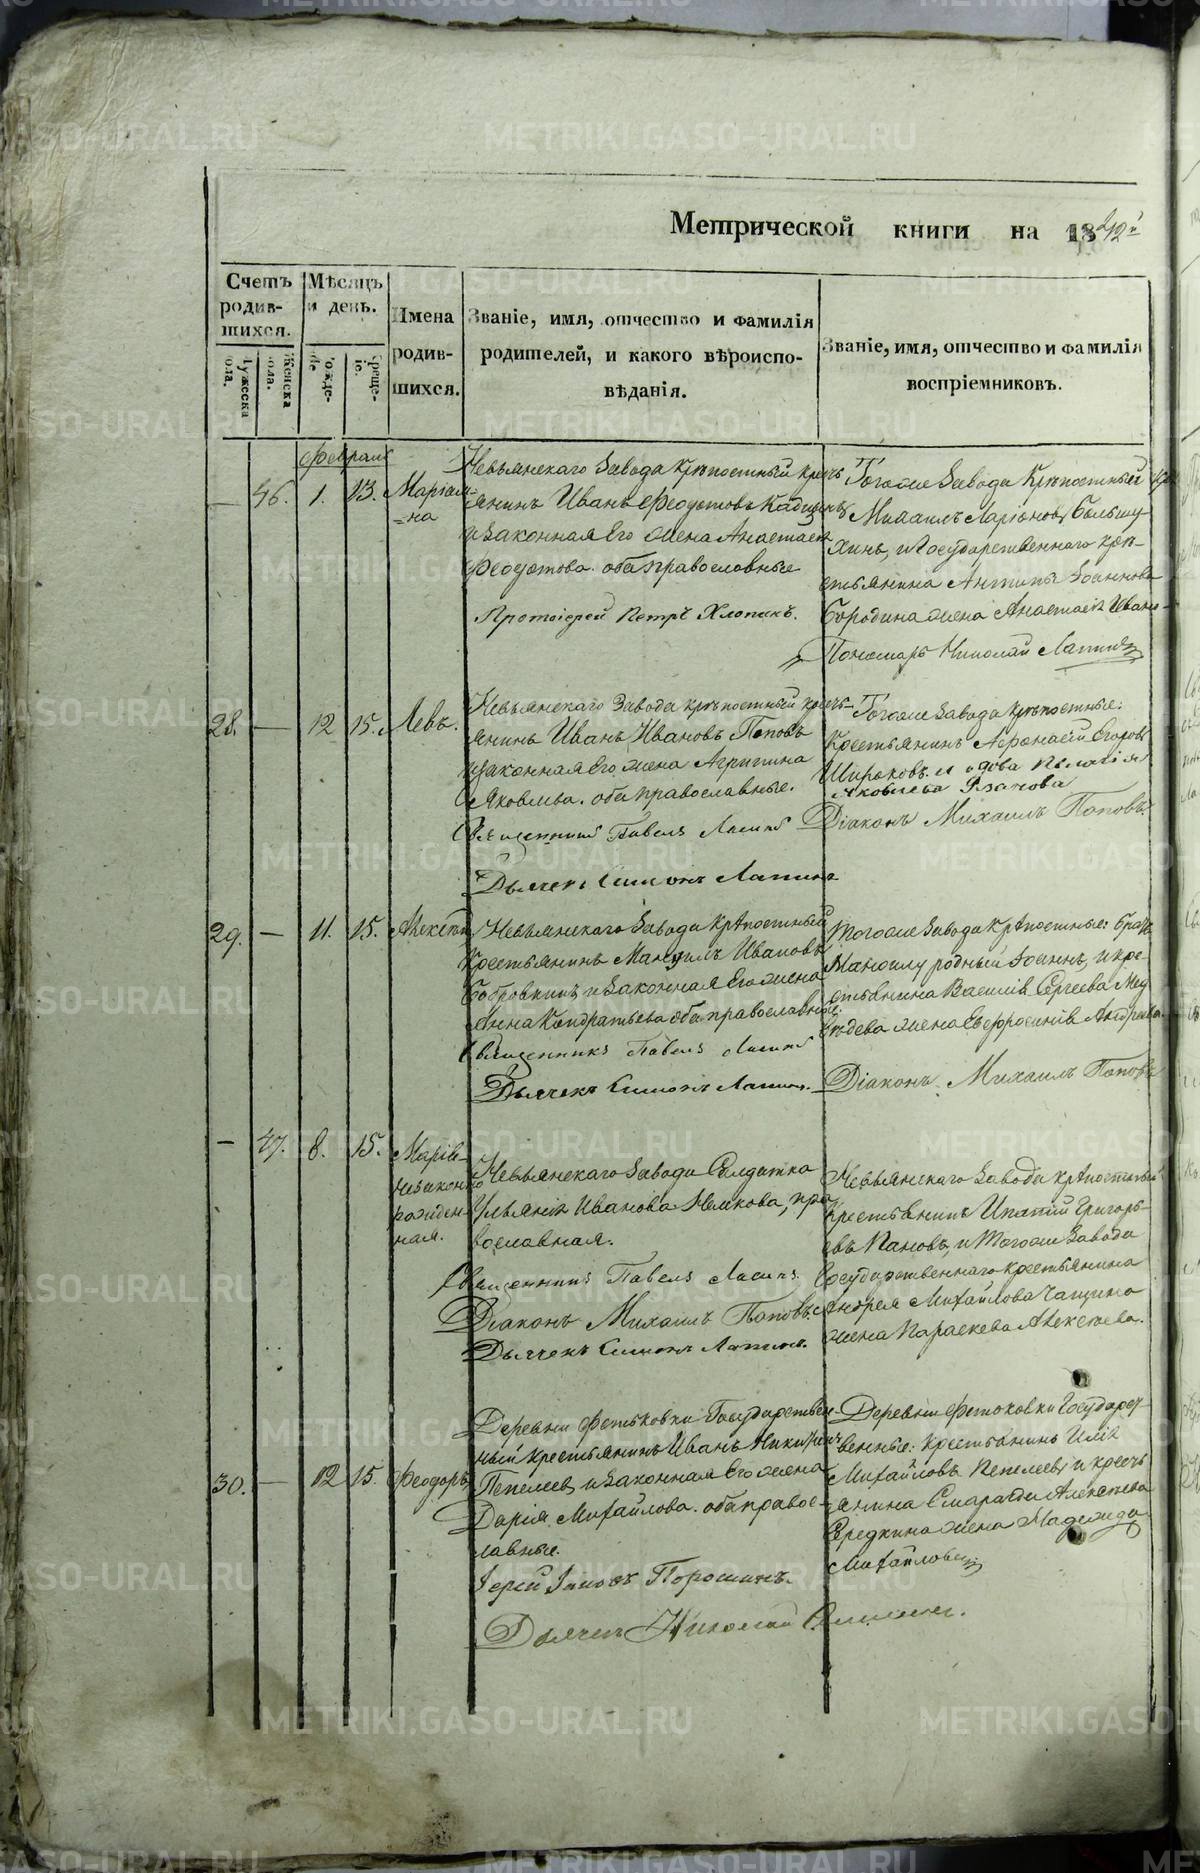 Метрической книги на 1842й
Счетъ родив-шихся.
Мѣсяцъ и день.
Имена родив-шихся.
Званіе, имя, отчество и фамилія
родителей, и какого вѣроиспо-
вѣданія.
Званіе, имя, отчество и фамилія
воспріемниковъ.
Мужеска пола.
Женска пола.
Рожде-ніе
Креще-ніе.
Февраля
— 46. 1. 13. Маріам-
=на
Невьянскаго Завода Крѣпостный кресть
янинъ Иванъ Феодотовъ
и Законная Его Жена Анастасія
Феодотова. оба православные
Протоіерей Петръ Хлопинъ.
Тогоже Завода Крѣпостный кр
Михаилъ Ларіоновъ
хинъ, и Государственнаго кре-
стьянина Антипы Іоаннова
Бородина жена Анастасія Ивано-
Пономарь Николай Лапинъ
28. — 12 15. Левъ.
Невьянскаго Завода крѣпостный кресть-
янинъ Иванъ Ивановъ Поповъ
и законная Его жена Агрипина
Яковлева. оба православные.
Священникъ Павелъ
Дьячекъ Симонъ Лапинъ
Тогоже Завода крѣпостные:
Крестьянинъ Афонасій Егоровъ
Широковъ. и вдова Пелагія
Яковлева
Діаконъ Михаилъ Поповъ.
29. — 11. 15. Алексѣй
Невьянскаго Завода Крѣпостный
Крестьянинъ Мануилъ Ивановъ
Бобровкинъ и Законная Его жена
Анна Кондратьева оба православные.
Священникъ Павелъ
Дьячекъ Симонъ Лапинъ.
Тогоже Завода Крѣпостные: братъ
Мануилу родный Іоаннъ, и кре-
стьянина Василія Сергеева Мед
вѣдева жена Евфросинія Андреева.
Діаконъ Михаилъ Поповъ
— 47. 8. 15. Марія-
незаконно
рожден-
ная.
Невьянскаго Завода Солдатка
Ульянія Иванова пра
вославная.
Священникъ Павелъ
Діаконъ Михаилъ Поповъ.
Дьячекъ Симонъ Лапинъ.
Невьянскаго Завода крѣпостный
крестьянинъ Ипатій Григорь-
евъ Пановъ, и Тогоже Завода
Государственнаго крестьянина
Андрея Михайлова Чащина
жена Параскева Алексѣева.
30. — 12 15. Феодоръ
Деревни Фетьковки Государствен
ный крестьянинъ Иванъ
Пепелевъ и Законная Его жена
Дарія Михайлова. оба правос-
лавные.
Іерей Іаковъ Порошинъ.
Дьячекъ Николай
Деревни Фетьковки Государст-
венные: крестьянинъ Илія
Михайловъ Пепелевъ и кресть
янина Смарагда Алексѣева
Середкина жена Надежда
Михайлова